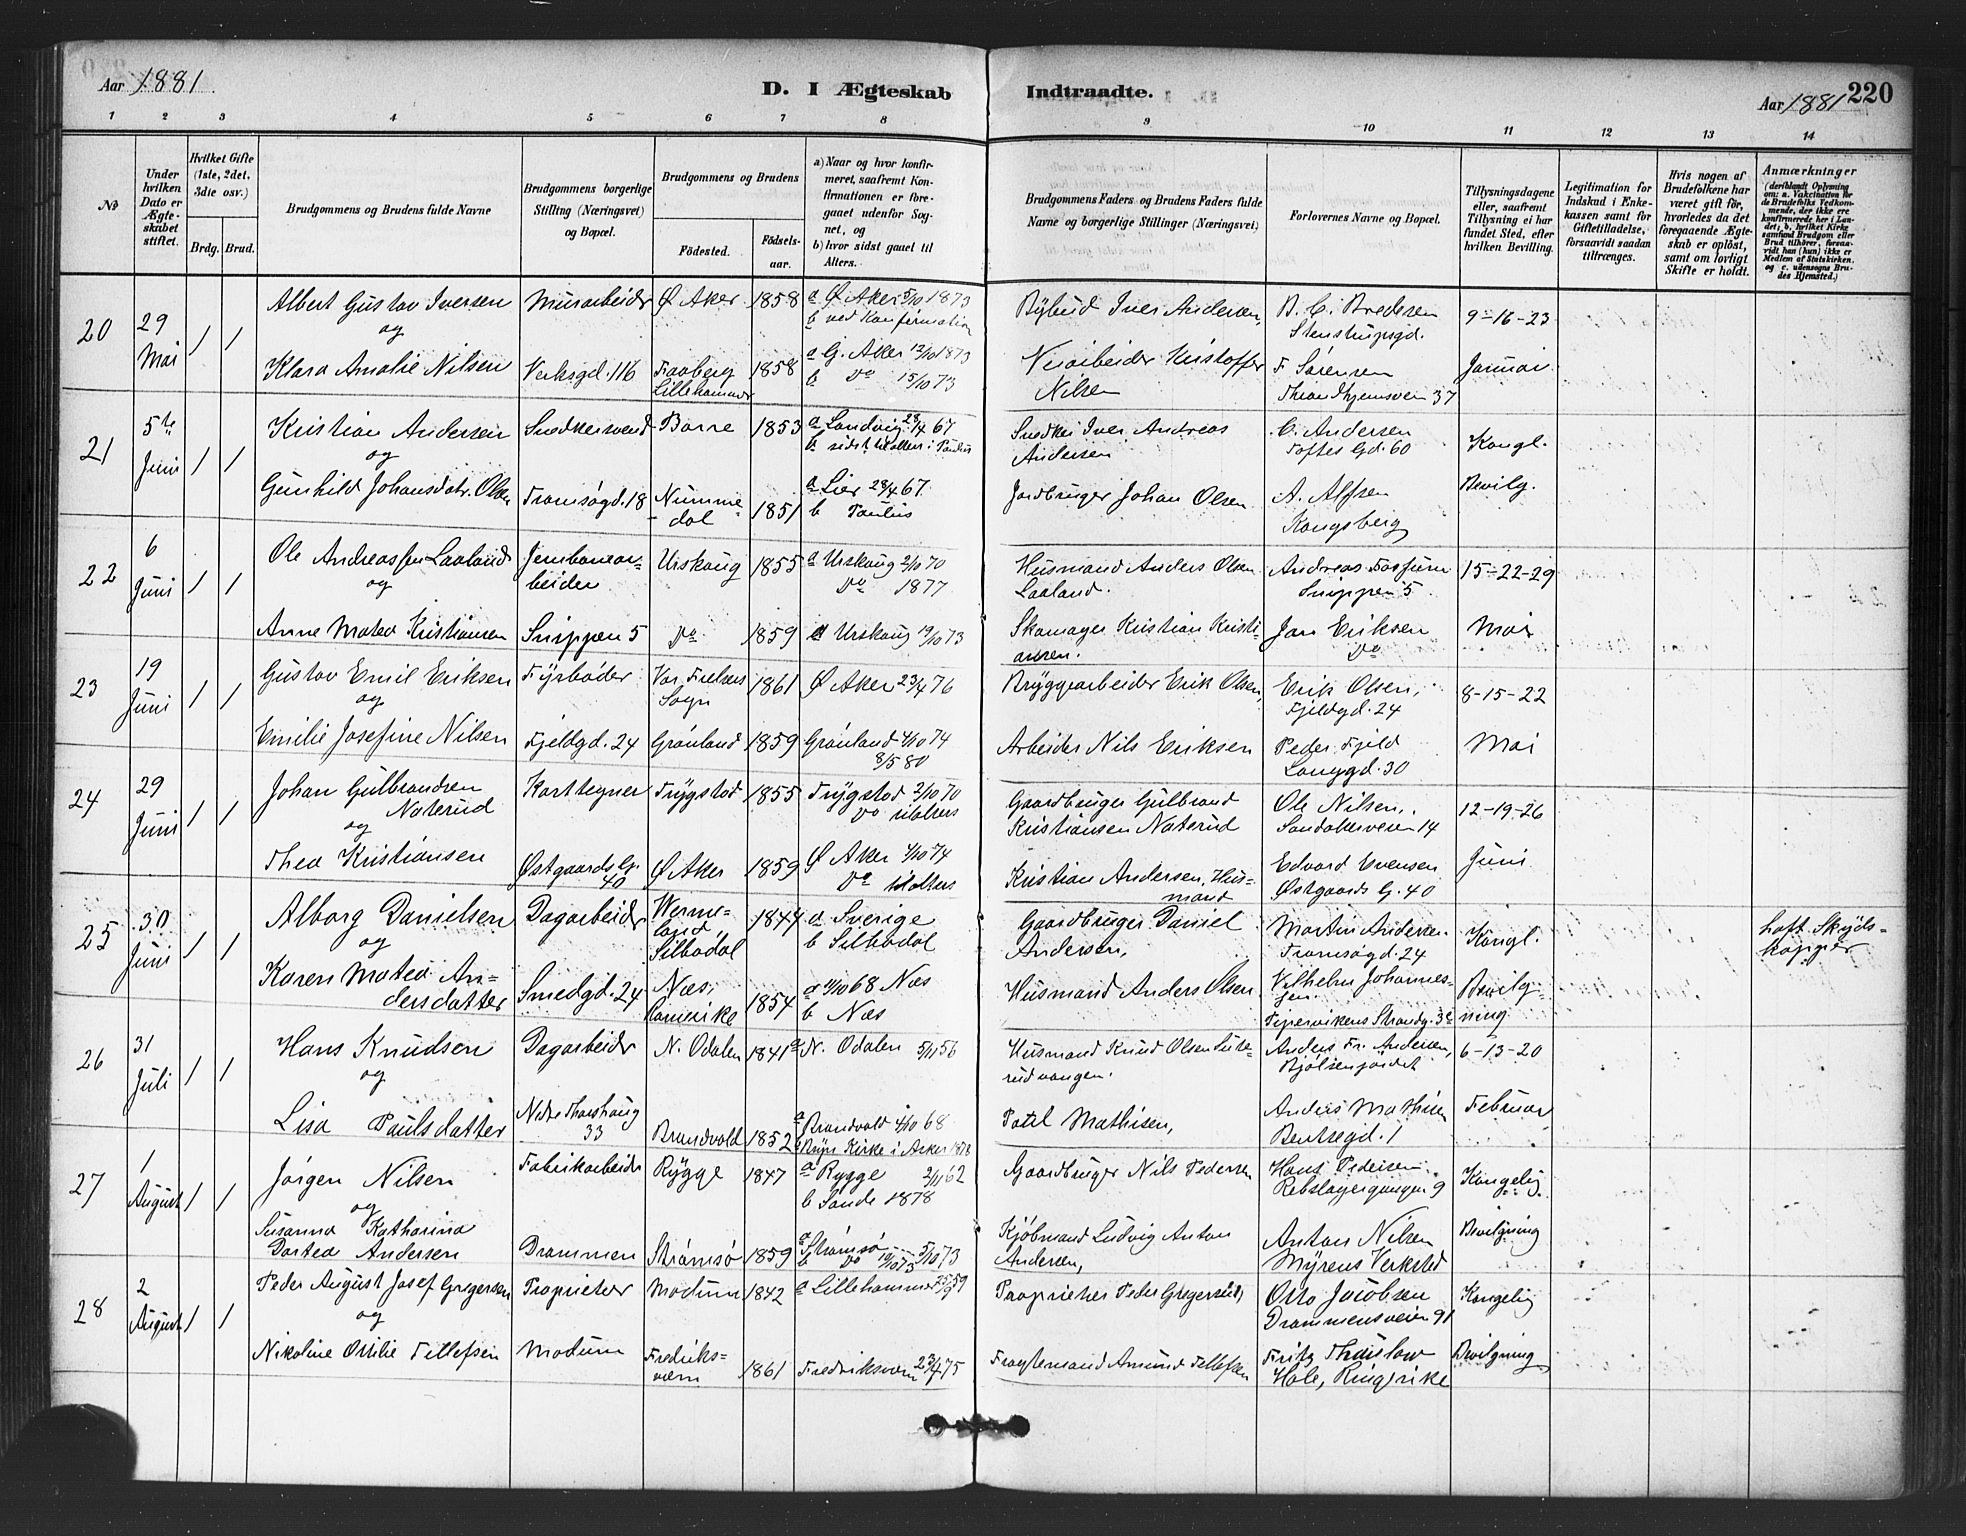 Aar 1881.
D. I Ægteskab
Indtraadte.
Aar 1881
220
1 2 3 4 5 6 7 8 9 10 11 12 13 14
No
Under hvilken Dato er Ægteskabet stiftet.
Hvilket Gifte (1ste, 2det, 3die osv.)
Brdg. Brud.
Brudgommens og Brudens fulde Navne
Brudgommens borgerlige Stilling (Næringsvei) og Bopæl.
Brudgommens og Brudens
Fødested.
Fødselsaar.
a) Naar og hvor konfirmeret, saafremt Konfirmationen er foregaaet udenfor Sognet, og
b) hvor sidst gaaet til Alters.
Brudgommens Faders og Brudens Faders fulde Navne og borgerlige Stillinger (Næringsvei)
Forlovernes Navne og Bopæl.
Tillysningsdagene eller, saafremt Tillysning ei har fundet Sted, efter hvilken Bevilling.
Legitimation for Indskud i Enkekassen samt for Giftetilladelse, forsaavidt saadan tiltrænges.
Hvis nogen af Brudefolkene har været gift før, hvorledes da det foregaaende Ægteskab er opløst, samt om lovligt Skifte er holdt.
Anmærkninger
(deriblandt Oplysning om: a. Vakcination for de Brudefolks Vedkommende, der ikke ere konfirmerede her i Landet; b. hvilket Kirkesamfund Brudgom eller Brud tilhører, forsaavidt han (hun) ikke er Medlem af Statskirken, og c. udensogns Brudes Hjemsted.)
20 29 Mai 1 1 Albert Gustav Iversen Murarbeider Ø Aker 1858 a Ø Aker 5/10 1873 b ved Konfirmation Iver Andersen, B. C. Bredesen Stenstrupsgd. 9-16-23
og
Klara Amalie Nilsen Verksgd. 116 Faaberg Lillehammer 1858 a G. Aker 12/10 1873 b Do 15/10 73 Veiarbeider Kristoffer Nilsen F Sörensen Thran 37 Januar
21 5te Juni 1 1 Kristian Andersen Snedkersvend Borre 1853 a Landvig 28/4 67 b sidst til alters i Paulus Snedker Iver Andreas Andersen C. Andersen Toftes Gd. 60 Kongl.
og
Gunhild Johansdatr. Olsen Tromsøgd. 18 Nummedal 1851 a Lier 28/4 67. b Paulus Jordbruger Johan Olsen A. Alfsen Kongsberg Bevilg.
22 6 Juni 1 1 Ole Andreassen Laaland Jernbanearbeider Urskoug 1855 a Urskoug 2/10 70 Do 1877 Husmand Anders Olsen Laaland. Andreas Fossum Snippen 5 15-22-29
og
Anne Matea Kristiansen Snippen 5 Do 1859 a Urskoug 19/10 73 Skomager Kristian Kristiansen. Jan Eriksen Do Mai
23 19 Juni 1 1 Gustav Emil Eriksen Fyrbøder Vor Frelsers Sogn 1861 Ø Aker 23/4 76 Bryggearbeider Erik Olsen, Erik Olsen, Fjeldgd. 24 8-15-22
og
Emilie Josefine Nilsen Fjeldgd. 24 Grønland 1859 Grønland 4/10 74 9/5 80 Arbeider Nils Eriksen Peder Fjeld Langgd. 30 Mai
24 29 Juni 1 1 Johan Gulbrandsen Naterud Karttegner Trygstad 1855 Trygstad 2/10 70 Do til alters Gaardbruger Gulbrand Kristiansen Naterud Ole Nilsen, Sandakerveien 14 12-19-26
og
Thea Kristiansen Østgaards G. 40 Ø Aker 1859 Ø Aker 4/10 74 Do til alters Kristian Andersen, Husmand Edvard Evensen Østgaards G. 40 Juni
25 30 Juni 1 1 Alborg Danielsen Dagarbeider Wermeland Silbodal 1844 a Sverige b Silbodal Gaardbruger Daniel Andersen, Martin Andersen Tromsøgd. 24 Kongl. haft Skydskopper
og
Karen Matea Andersdatter Smedgd. 24 Næs, Romerike 1854 a 11/10 68 Næs b Næs Husmand Anders Olsen Vilhelm Johannessen. Pipervikens Strandg. 32 Bevilgning
26 31 Juli 1 1 Hans Knudsen Dagarbeider N. Odalen 1841 a N. Odalen 5/11 56 Husmand Knud Olsen Anders Fr. Andersen, Bjølsenjordet 6-13-20
og
Lisa Paulsdatter Nedre Thorshaug 33 Brandvold 1852 a Brandvold 4/10 68 Kirke i Aker 1878 Poul Mathisen, Anders Mathisen Bentsegd. 1 Februar
27 1 August 1 1 Jørgen Nilsen Fabrikarbeider Rygge 1847 a Rygge 2/11 62 b Sande 1878 Gaardbruger Nils Pedersen Hans Pedersen. Rebslagergangen 9 Kongelig
og
Susanna Katharina Dortea Andersen Drammen Strømsø 1859 a Strømsø 5/10 73 b Do 19/10 73 Kjøbmand Ludvig Anton Andersen, Anton Nilsen Myrens Verksted Bevilgning
28 2 August 1 1 Peder August Josef Gregersen Proprietær Modum 1842 a Lillehammer 25/9 59 Proprietær Peder Gregersen, Otto Jacobsen Drammensveien 91 Kongelig
og
Nikoline Otilie Tellefsen Modum Fredriksværn 1861 Fredriksværn 23/4 75 Fragtemand Amund Tellefsen Fritz Thaulow Hole, Ringerike Bevilgning